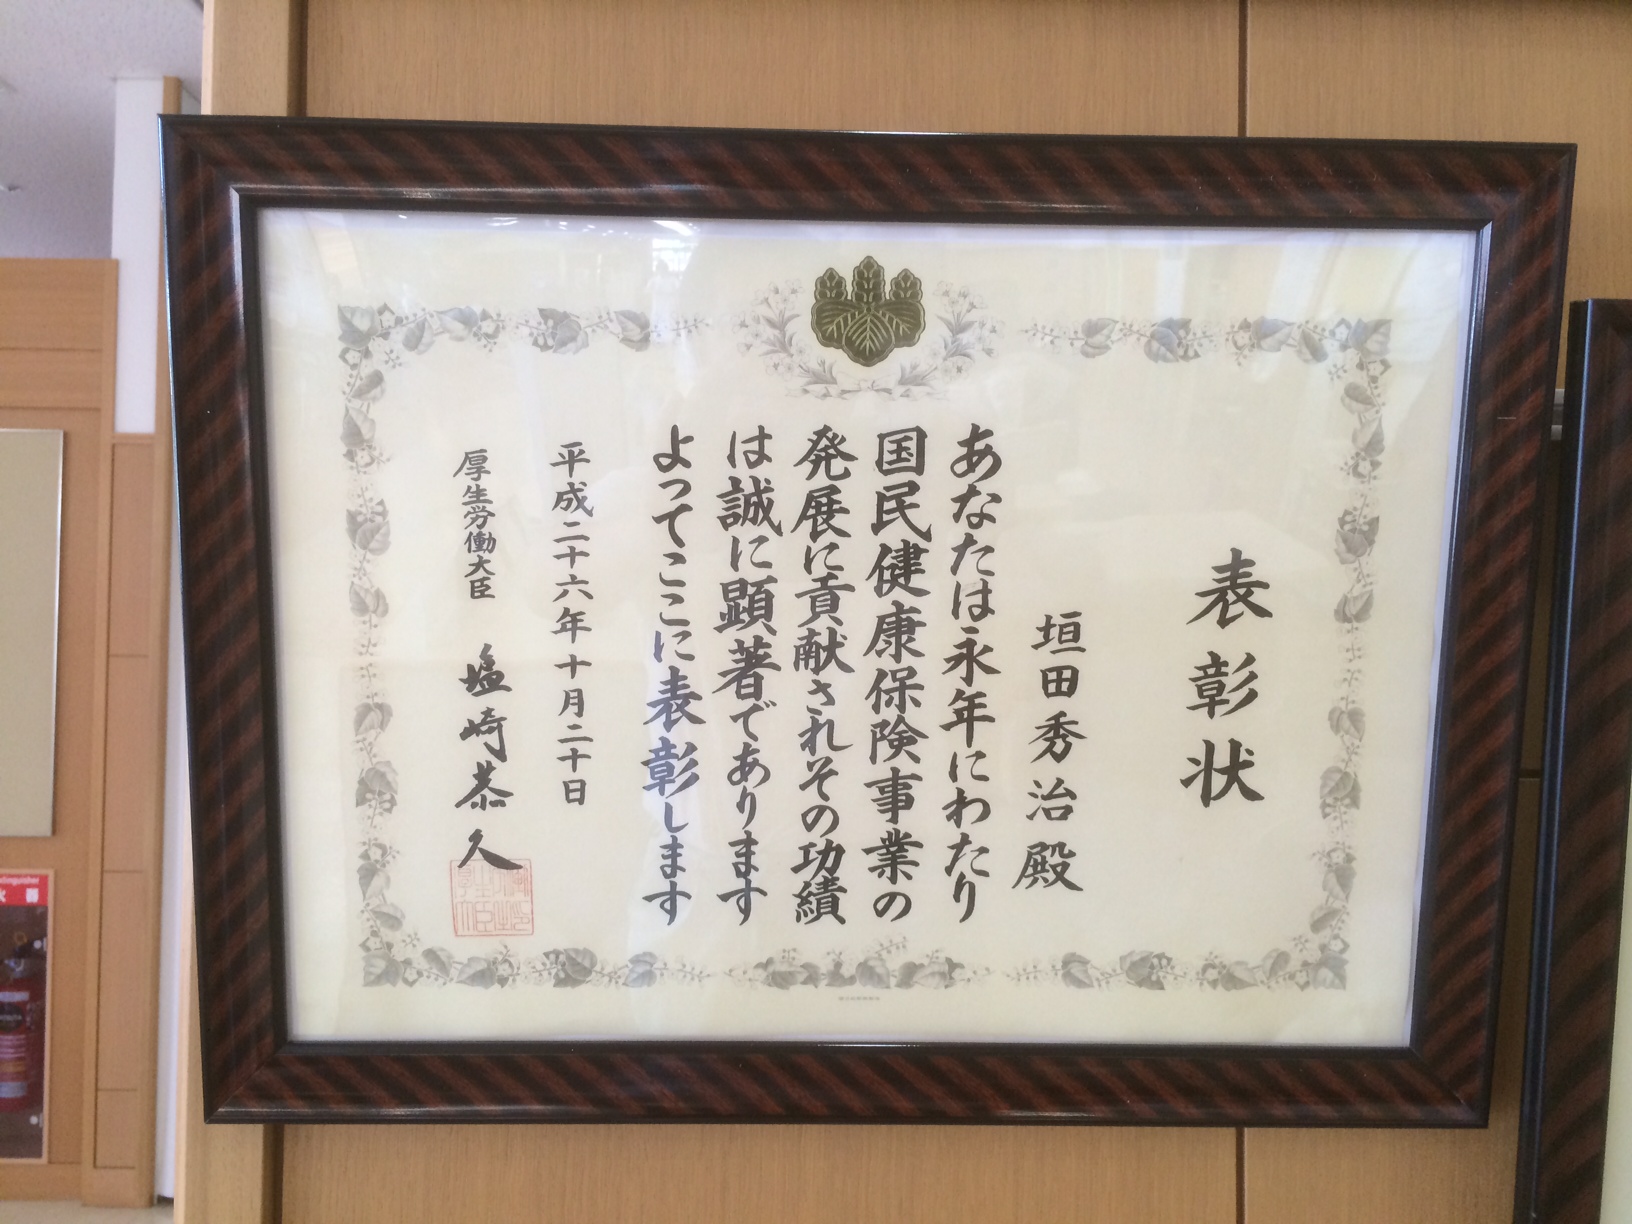 表彰状
垣田秀治殿
あなたは永年にわたり
国民健康保険事業の
発展に貢献されその功績
は誠に顕著であります
よってここに表彰します
平成二十六年十月二十日
厚生労働大臣 塩崎恭久